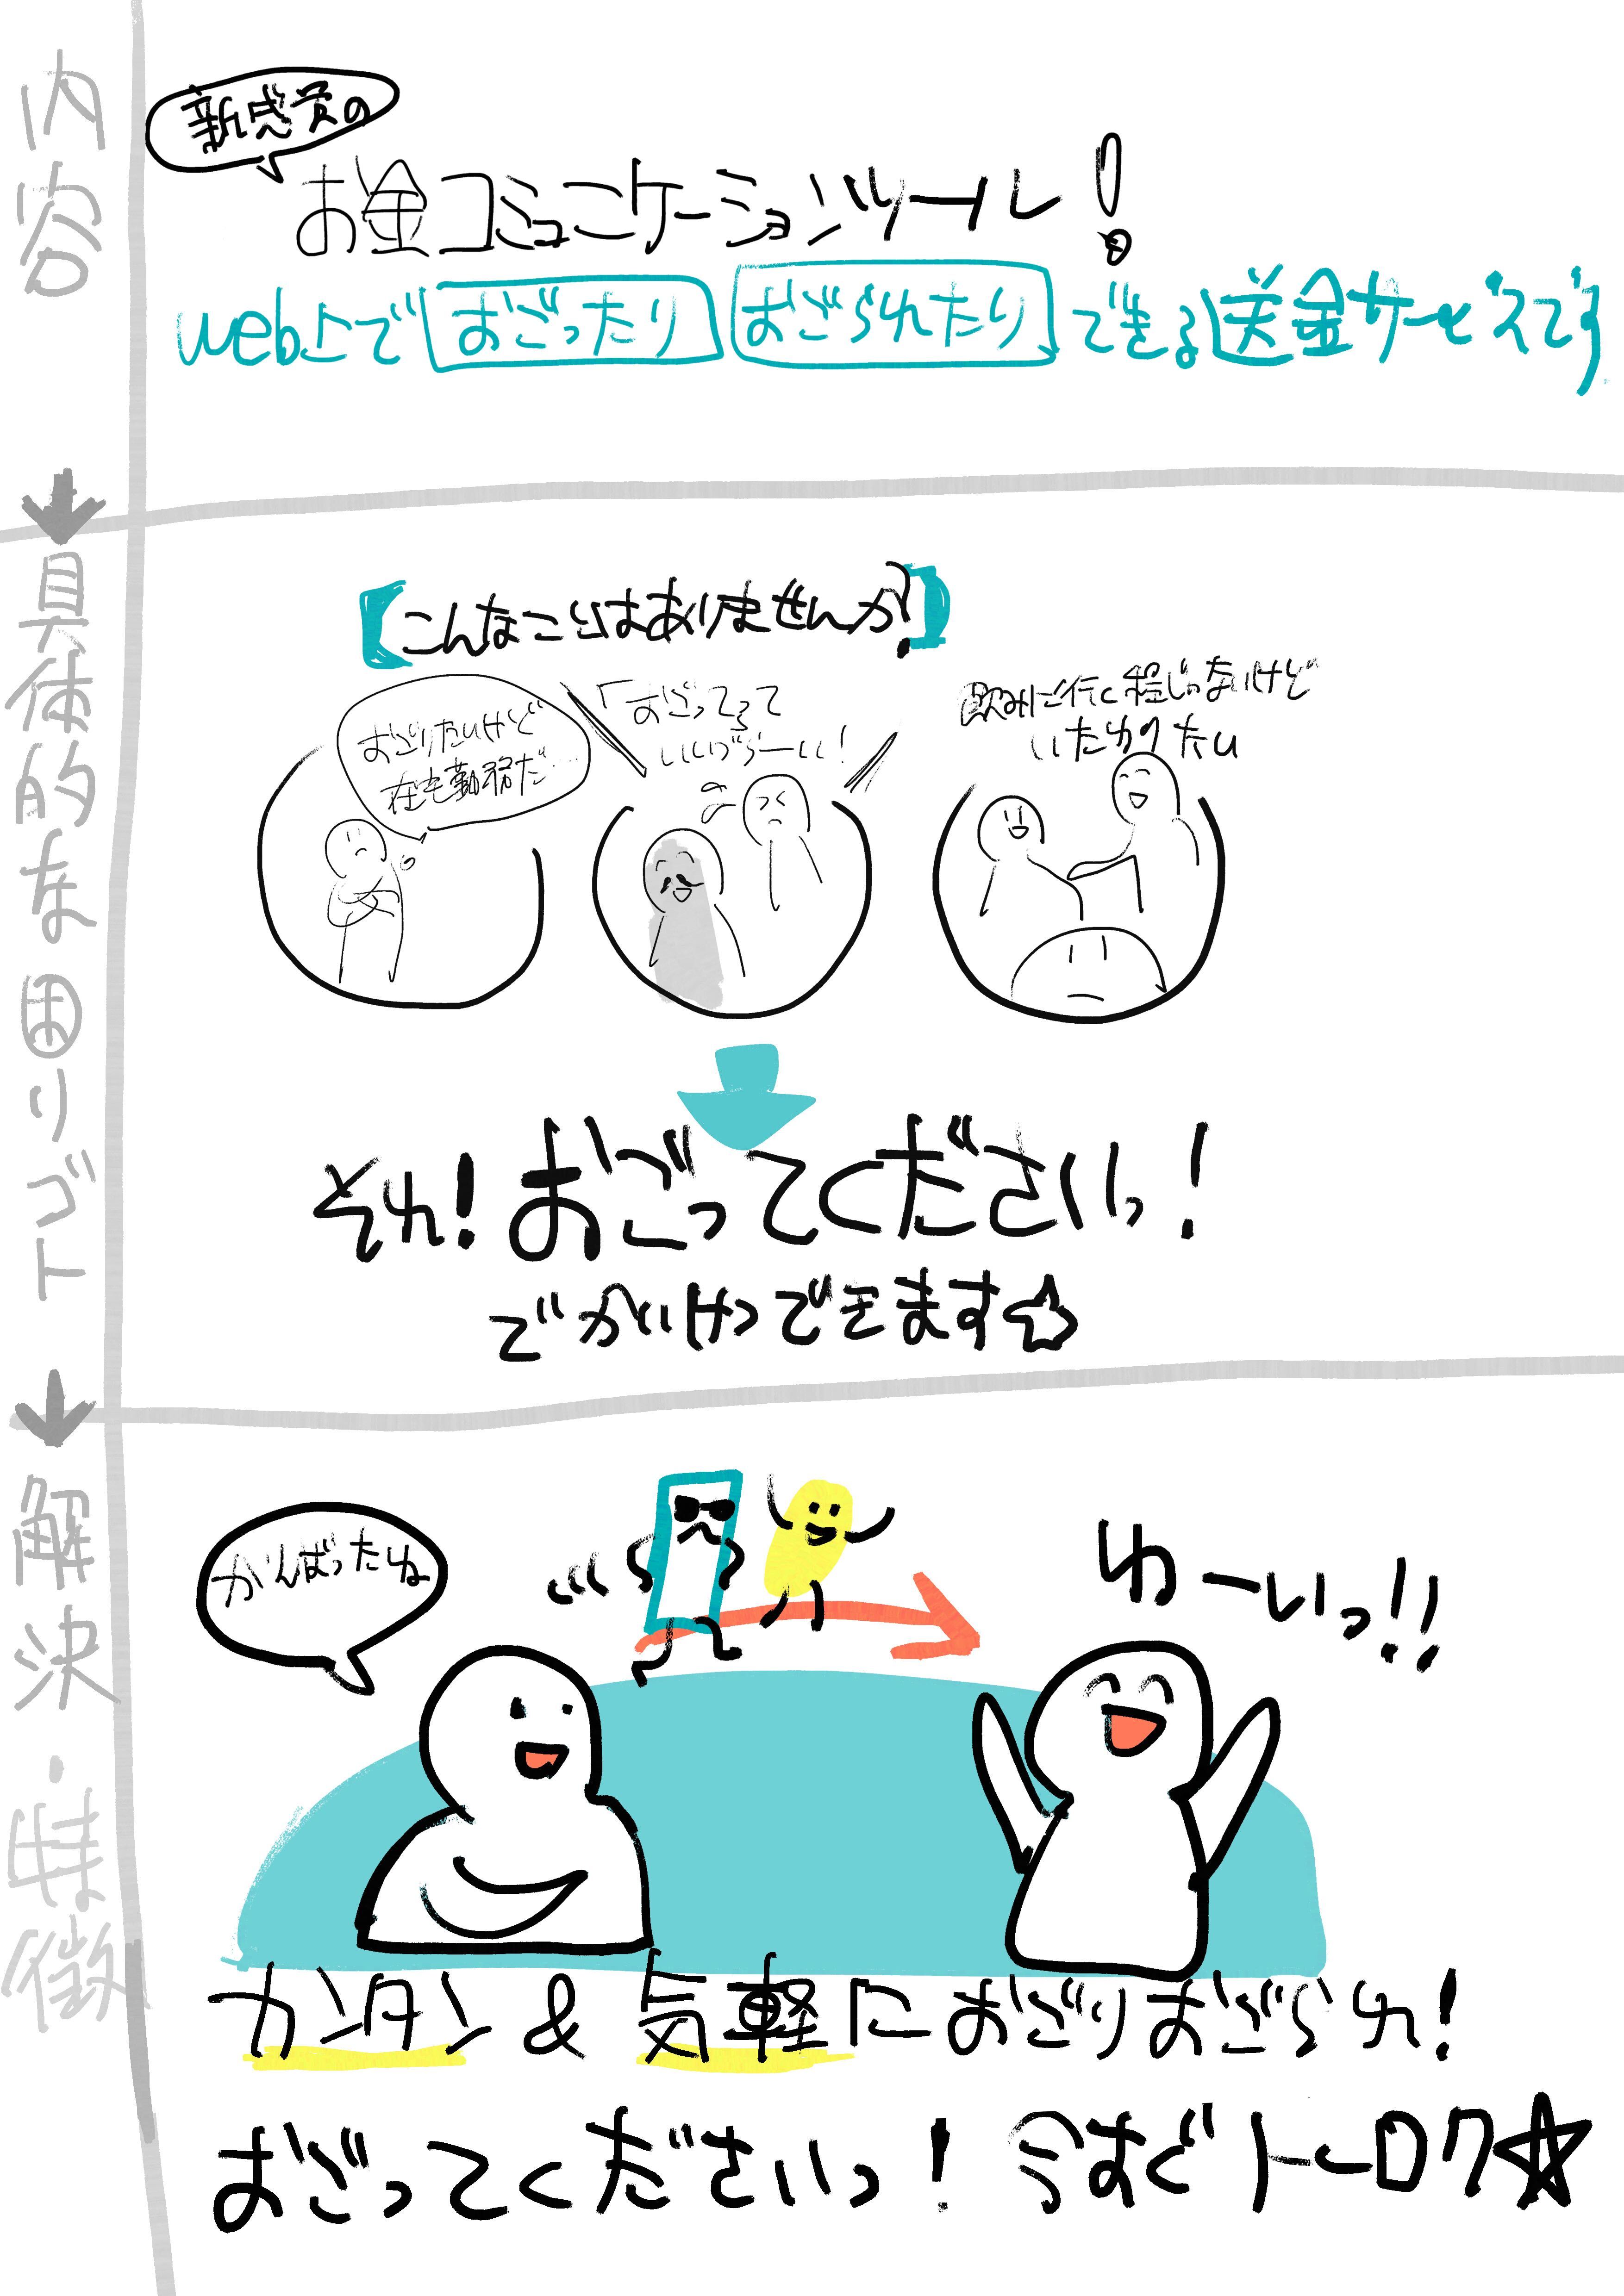 内容
新感覚の
お金コミュニケーションツール!
web上でおごったりおごられたりできる送金サービスです
具体的な困りゴト
【こんなことはありませんか?】
おごりたいけど
在宅勤務だ…
「おごってって
いいづらーい!
飲みに行く程じゃないけど
いたわりたい
それ!おごってくださいっ!
でかいけつできます☆
解決・特徴
がんばったね
わーいっ!!
カンタン&気軽におごりおごられ!
おごってくださいっ!今すぐトーロク☆